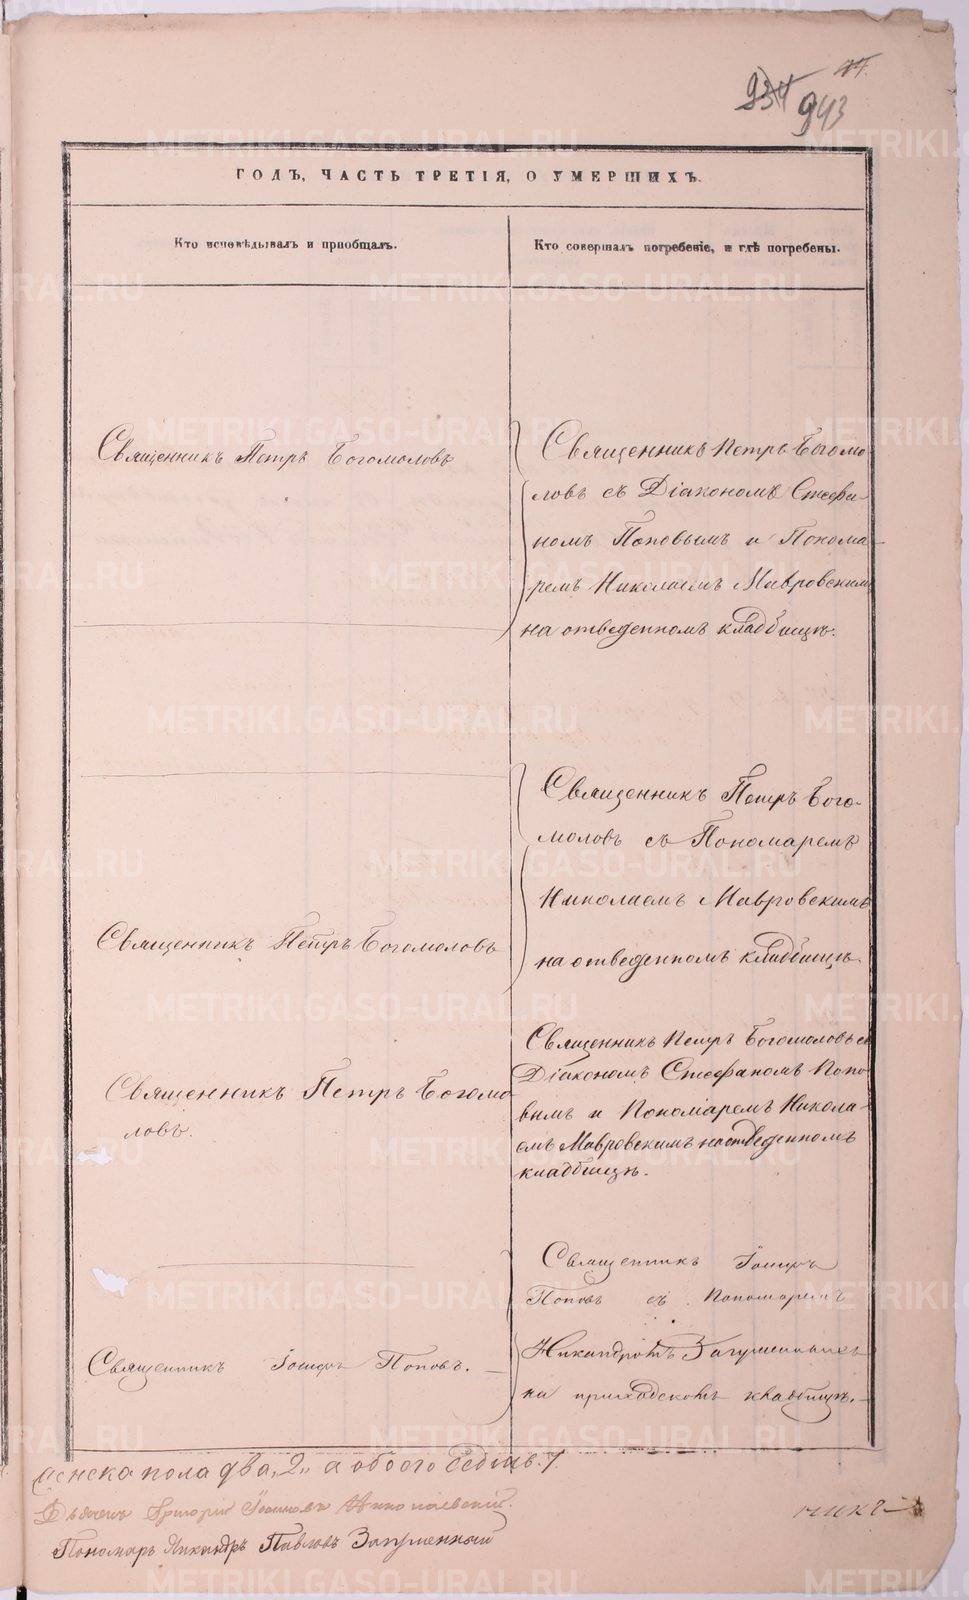 934 943
ГОДЪ, ЧАСТЬ ТРЕТІЯ, О УМЕРШИХЪ.
Кто исповѣдывалъ и пріобщалъ.
Кто совершалъ погребеніе, и гдѣ погребены.
Священникъ Петръ Богомоловъ
Священникъ Петръ Богомо-
ловъ съ Діакономъ Стефа-
номъ Поповымъ и Понома-
ремъ Николаемъ Мавровскимъ
на отведенномъ кладбищѣ.
Священникъ Петръ Богомоловъ
Священникъ Петръ Бого-
моловъ съ Пономаремъ
Николаемъ Мавровскимъ
на отведенномъ кладбищѣ.
Священникъ Петръ Богомо-
ловъ.
Священникъ Петръ Богомоловъ съ
Діакономъ Стефаномъ Попо-
вымъ и Пономаремъ Никола-
емъ Мавровскимъ на отведенномъ
кладбищѣ.
Священникъ Іосифъ Поповъ.
Священникъ Іосифъ
Поповъ съ Пономаремъ
Никандромъ Загуменнымъ
на приходскомъ кладбищѣ.
женска пола два, 2, а обоего седмь. 7.
Григорій Іоанновъ Николаевскій.
Пономарь Никандръ Павловъ Загуменный
никъ
METRIKI.GASO-URAL.RU